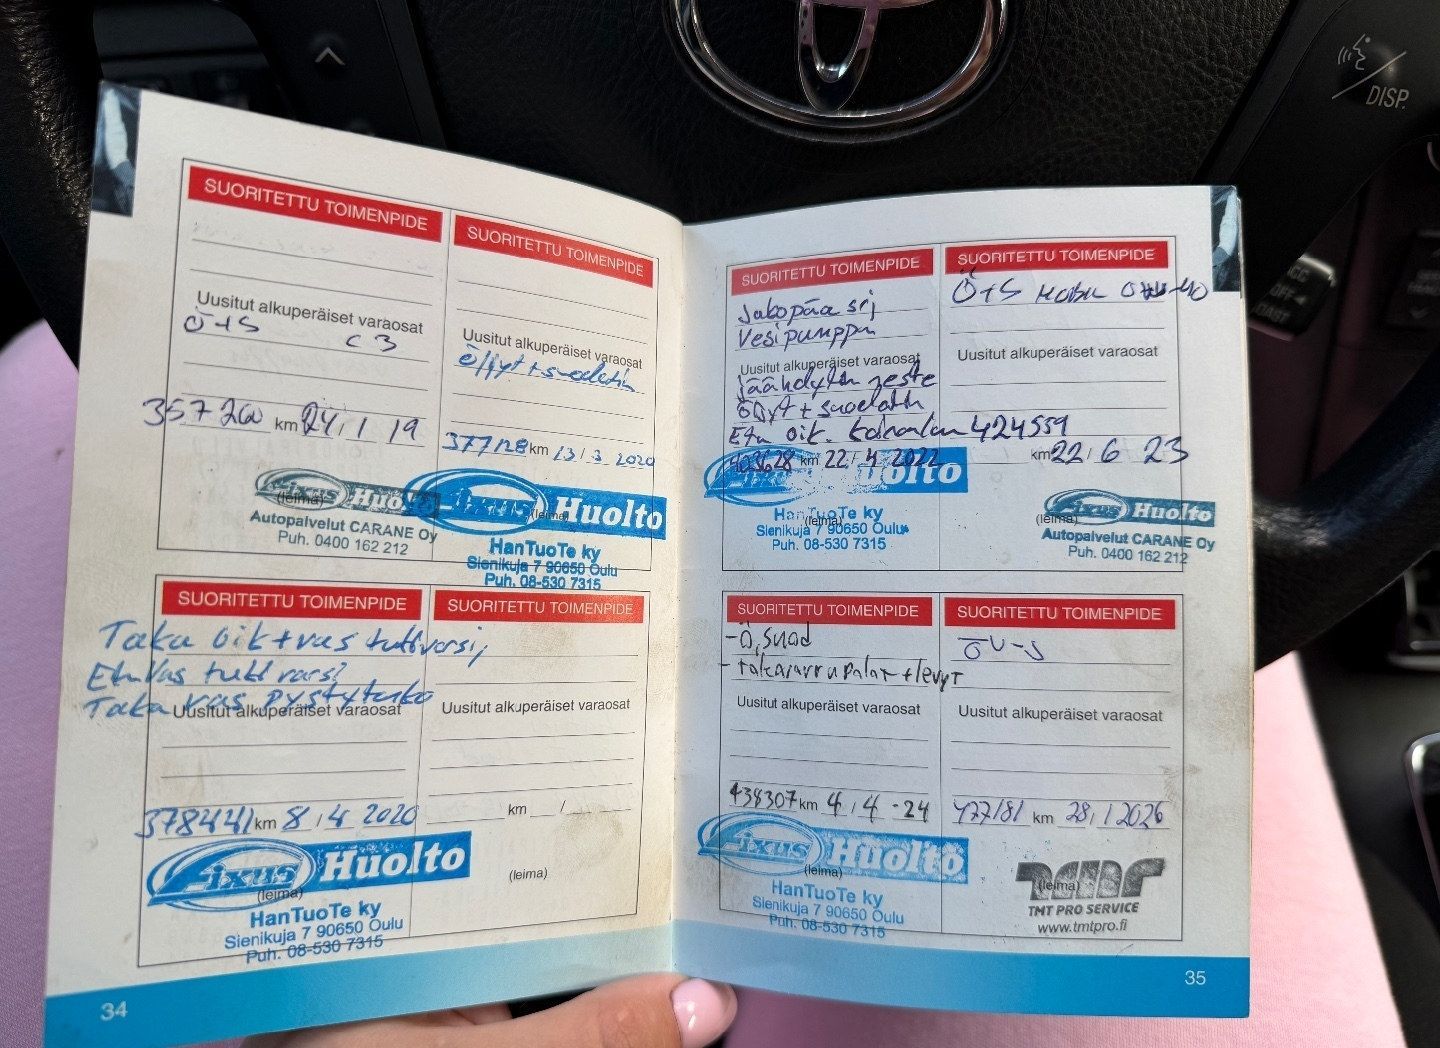 DISP.
SUORITETTU TOIMENPIDE
Uusitut alkuperäiset varaosat
Ö+S
C3
357200 km 24/1 19
(leima)
Fixus Huolto
Autopalvelut CARANE Oy
Puh. 0400 162 212
SUORITETTU TOIMENPIDE
Uusitut alkuperäiset varaosat
öljyt + suodatin
377128 km 13/3 2020
Fixus Huolto
(leima)
HanTuoTe ky
Sienikuja 7 90650 Oulu
Puh. 08-530 7315
SUORITETTU TOIMENPIDE
Taka oik+vas tukivarsi,
Etu vas tukivarsi
Taka vas pystytuki
Uusitut alkuperäiset varaosat
378441 km 8/4 2020
Fixus Huolto
(leima)
HanTuoTe ky
Sienikuja 7 90650 Oulu
Puh. 08-530 7315
SUORITETTU TOIMENPIDE
Uusitut alkuperäiset varaosat
km /
(leima)
34
SUORITETTU TOIMENPIDE
Jakopää srj
Vesipumppu
Uusitut alkuperäiset varaosat
jäähdytin neste
öljyt + suodatin
Etu oik.
403628 km 22/4 2022
Fixus Huolto
HanTuoTe ky
(leima)
Sienikuja 7 90650 Oulu
Puh. 08-530 7315
SUORITETTU TOIMENPIDE
Ö+S Mobil
Uusitut alkuperäiset varaosat
424559
km 22/6 23
Fixus Huolto
(leima)
Autopalvelut CARANE Oy
Puh. 0400 162 212
SUORITETTU TOIMENPIDE
-Ö, suod
- takajarrupalat + levyt
Uusitut alkuperäiset varaosat
438307 km 4/4 -24
Fixus Huolto
(leima)
HanTuoTe ky
Sienikuja 7 90650 Oulu
Puh. 08-530 7315
SUORITETTU TOIMENPIDE
Uusitut alkuperäiset varaosat
477181 km 28/1 2026
(leima)
TMT PRO SERVICE
www.tmtpro.fi
35